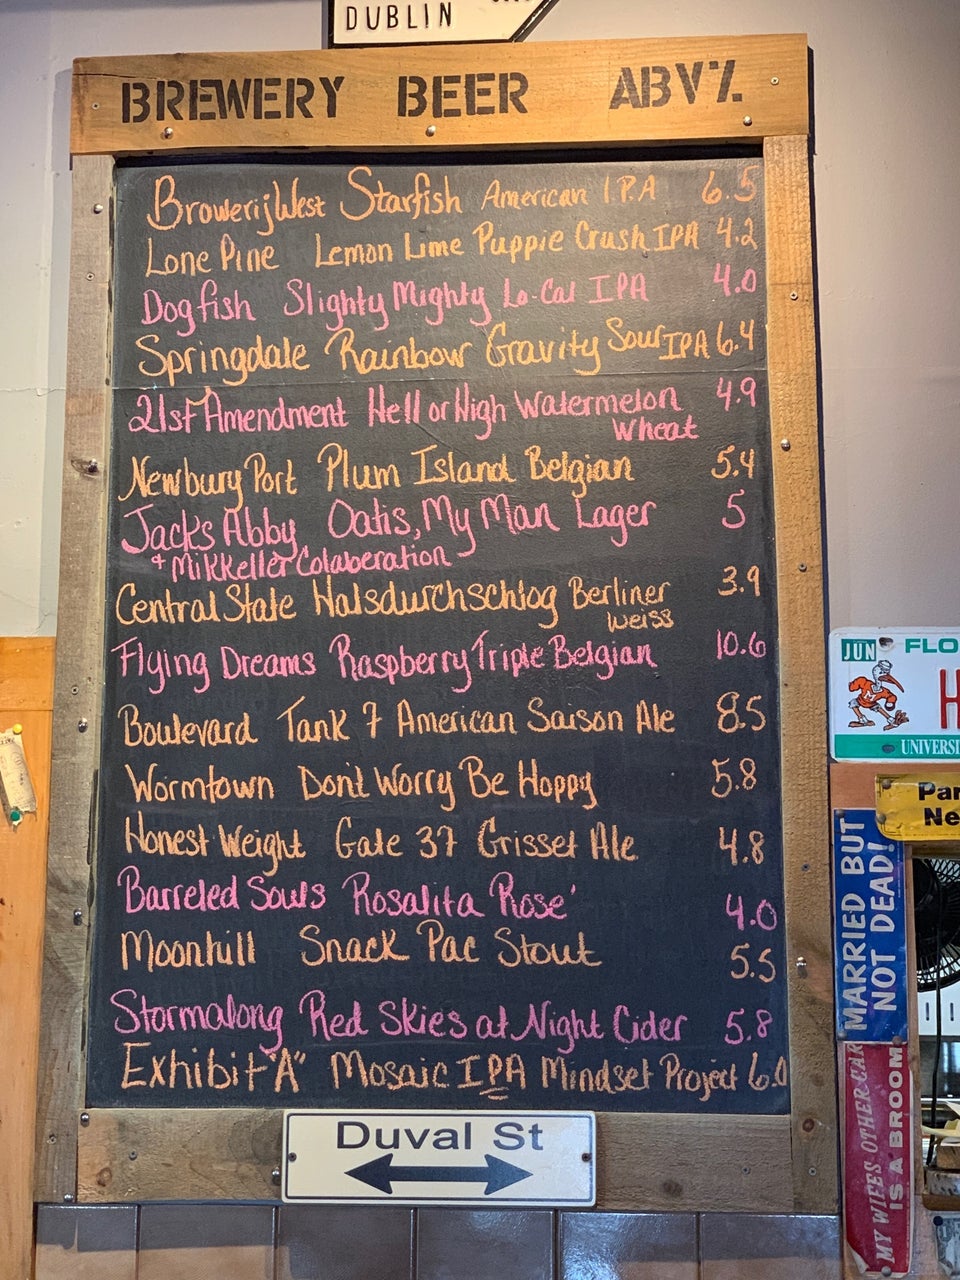 DUBLIN
BREWERY BEER ABV%
Browerij West Starfish American I.P.A 6.5
Lone Pine Lemon Lime Puppie Crush IPA 4.2
Dogfish Slighty Mighty Lo-Cal IPA 4.0
Springdale Rainbow Gravity Sour IPA 6.4
21st Amendment Hell or High Watermelon 4.9
Wheat
Newbury Port Plum Island Belgian 5.4
Jacks Abby Oatis, My Man Lager 5
+ Mikkeller Colaberation
Central State Halsdurchschlog Berliner 3.9
Weiss
Flying Dreams Raspberry Triple Belgian 10.6
Boulevard Tank 7 American Saison Ale 8.5
Wormtown Don't Worry Be Hoppy 5.8
Honest Weight Gale 37 Grisset Ale 4.8
Barreled Souls Rosalita Rose' 4.0
Moonhill Snack Pac Stout 5.5
Stormalong Red Skies at Night Cider 5.8
Exhibit "A" Mosaic IPA Mindset Project 6.0
Duval St
JUN FLO
H
UNIVERSI
Par
Ne
MARRIED BUT
NOT DEAD!
MY WIFES OTHER CAR
IS A BROOM